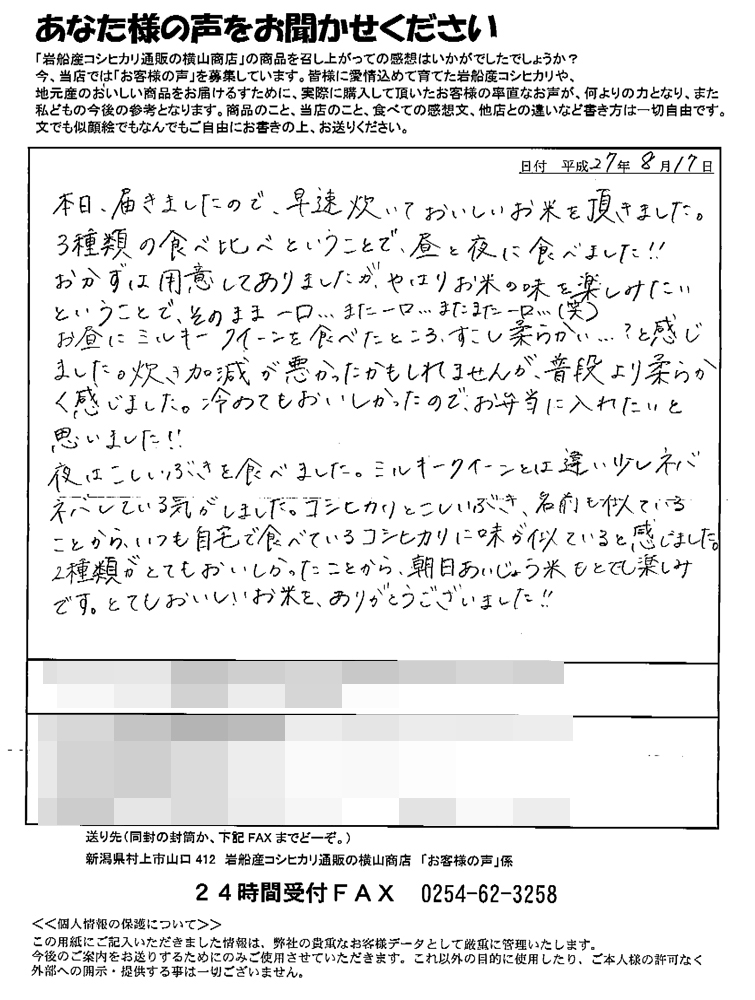 あなた様の声をお聞かせください
「岩船産コシヒカリ通販の横山商店」の商品を召し上がっての感想はいかがでしたでしょうか？
今、当店では「お客様の声」を募集しています。皆様に愛情込めて育てた岩船産コシヒカリや、
地元産のおいしい商品をお届けるすために、実際に購入して頂いたお客様の率直なお声が、何よりの力となり、また
私どもの今後の参考となります。商品のこと、当店のこと、食べての感想文、他店との違いなど書き方は一切自由です。
文でも似顔絵でもなんでもご自由にお書きの上、お送りください。
日付 平成27年8月17日
本日、届きましたので、早速炊いておいしいお米を頂きました。
3種類の食べ比べということで、昼と夜に食べました!!
おかずは用意してありましたが、やはりお米の味を楽しみたい
ということで、そのまま一口…また一口…またまた一口…(笑)
お昼にミルキークイーンを食べたところ、すこし柔らかい…?と感じ
ました。炊き加減が悪かったかもしれませんが、普段より柔らか
く感じました。冷めてもおいしかったので、お弁当に入れたいと
思いました!!
夜はこしいぶきを食べました。ミルキークイーンとは違い少しネバ
ネバしている気がしました。コシヒカリとこしいぶき、名前も似ている
ことから、いつも自宅で食べているコシヒカリに味が似ていると感じました。
2種類がとてもおいしかったことから、朝日あいじょう米もとても楽しみ
です。とてもおいしいお米を、ありがとうございました!!
送り先（同封の封筒か、下記FAXまでどーぞ。）
新潟県村上市山口412 岩船産コシヒカリ通販の横山商店 「お客様の声」係
２４時間受付ＦＡＸ 0254-62-3258
＜＜個人情報の保護について＞＞
この用紙にご記入いただきました情報は、弊社の貴重なお客様データとして厳重に管理いたします。
今後のご案内をお送りするためにのみご使用させていただきます。これ以外の目的に使用したり、ご本人様の許可なく
外部への開示・提供する事は一切ございません。